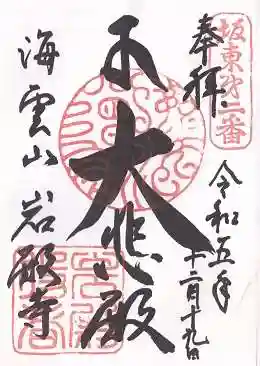 坂東第二番
奉拝
令和五年
十二月十九日
大悲殿
海雲山
岩殿寺